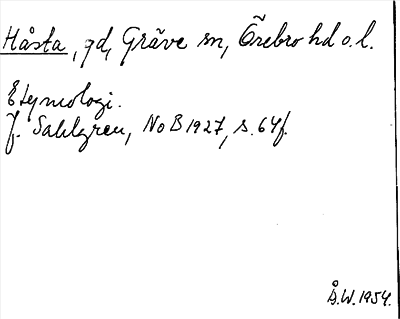 Håsta, gd, Gräve sn, Örebro hd o. l.
Etymologi.
J. Sahlgren, NoB 1927, s. 64f.
Å.W. 1954.